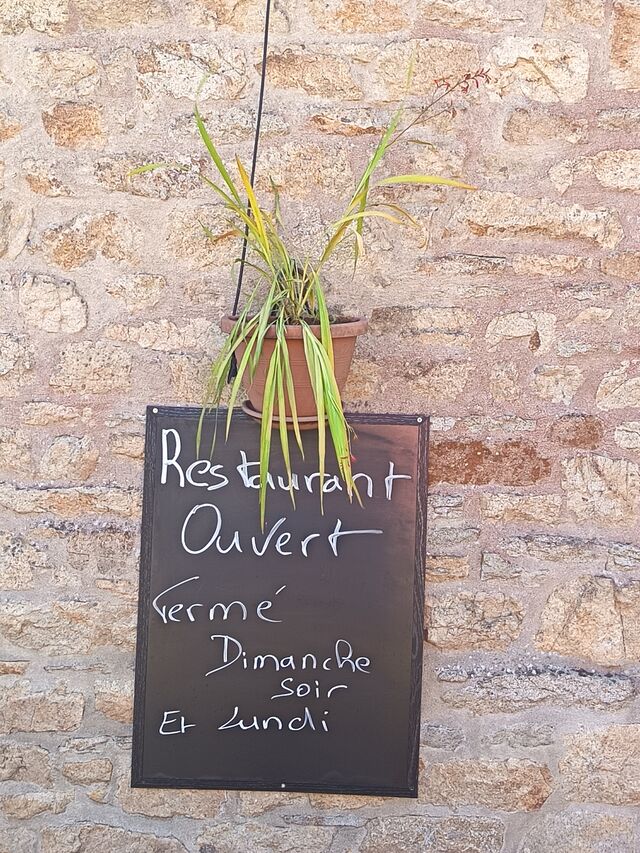 Restaurant
Ouvert
Fermé
Dimanche
soir
Et Lundi